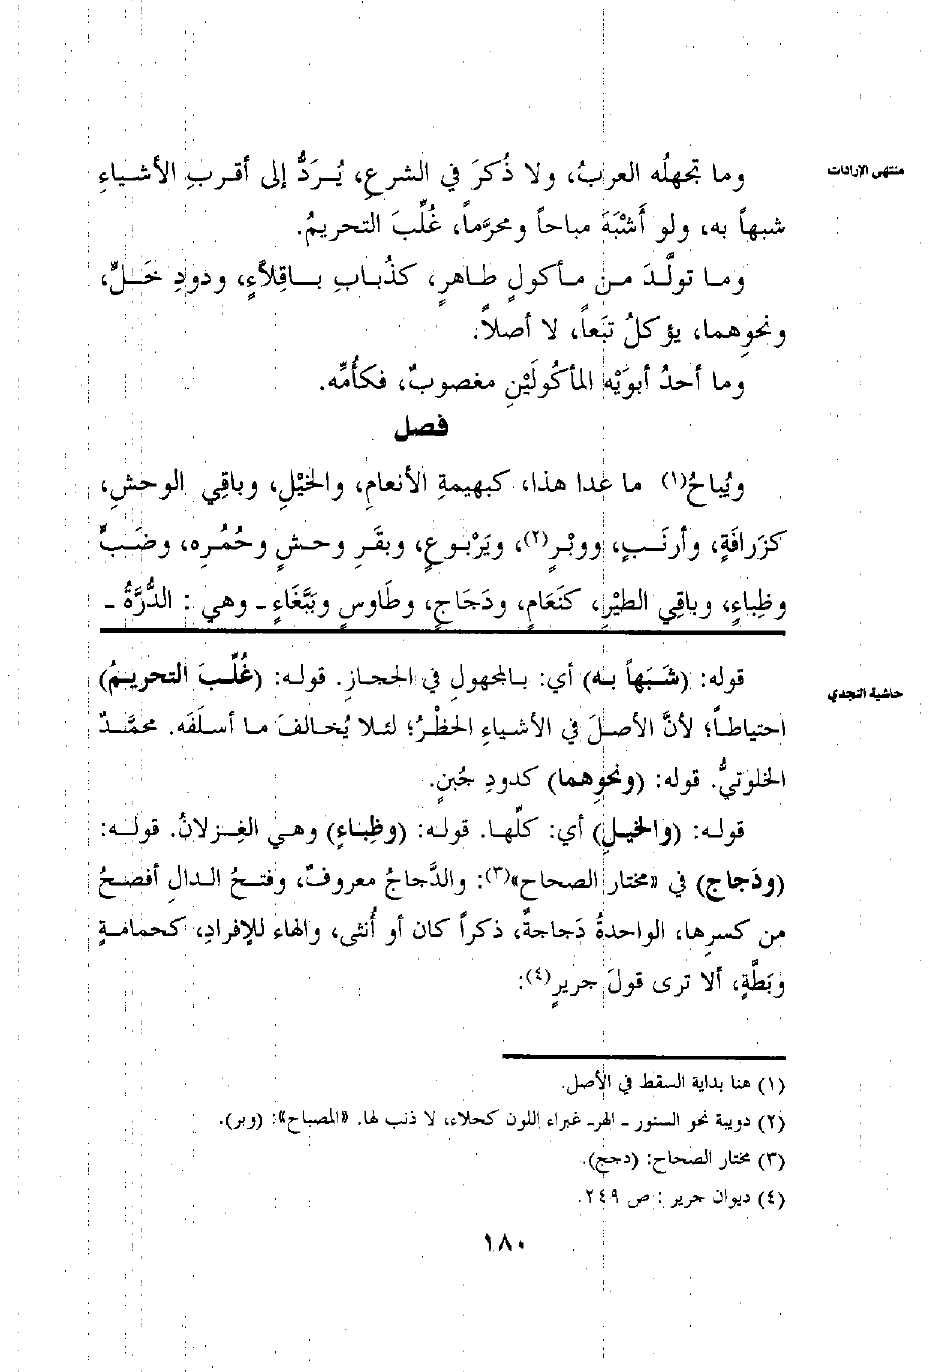 منتهى الإرادات
وما تجهلُه العربُ، ولا ذُكرَ في الشرعِ، يُرَدُّ إلى أقربِ الأشياءِ
شبهاً به، ولو أَشْبَهَ مباحاً ومحرَّماً، غُلِّبَ التحريمُ.
وما تولَّدَ من مأكولٍ طاهرٍ، كذُبابِ باقِلاَّءٍ، ودودِ خَلٍّ،
ونحوِهما، يؤكلُ تَبَعاً، لا أصلاً.
وما أحدُ أبوَيْه المأكُولَيْنِ مغصوبٌ، فكأُمِّه.
فصل
ويُباحُ(١) ما عدا هذا، كبهيمةِ الأنعامِ، والخيْلِ، وباقِي الوحشِ،
كزَرافَةٍ، وأرنَبٍ، ووبْرٍ(٢)، ويَرْبوعٍ، وبقَرِ وحشٍ وحُمُرِه، وضَبٍّ
وظِباءٍ، وباقِي الطيْرِ، كنَعَامٍ، ودَجَاجٍ، وطَاوسٍ وبَبَّغَاءٍ ـ وهي : الدُّرَّةُ ـ
حاشية النجدي
قوله: (شَبَهاً به) أي: بالمجهولِ في الحجازِ. قوله: (غُلِّبَ التحريمُ)
احتياطاً؛ لأنَّ الأصلَ في الأشياءِ الحظْرُ؛ لئلا يُخالفَ ما أسلَفَه. محمَّدٌ
الخلوتيُّ. قوله: (ونحوِهما) كدودِ جُبنٍ.
قوله: (والخيلِ) أي: كلِّها. قوله: (وظِباءٍ) وهي الغِزلانُ. قوله:
(ودَجاج) في «مختار الصحاح»(٣): والدَّجاجُ معروفٌ، وفتحُ الدالِ أفصحُ
من كسرِها، الواحدةُ دَجاجةٌ، ذكراً كان أو أُنثى، والهاء للإفرادِ، كحمامةٍ
وبَطَّةٍ، ألا ترى قولَ جريرٍ(٤):
(١) هنا بداية السقط في الأصل.
(٢) دويبة نحو السنور ـ الهرـ غبراء اللون كحلاء، لا ذنب لها. «المصباح»: (وبر).
(٣) مختار الصحاح: (دجج).
(٤) ديوان جرير : ص ٢٤٩.
١٨٠